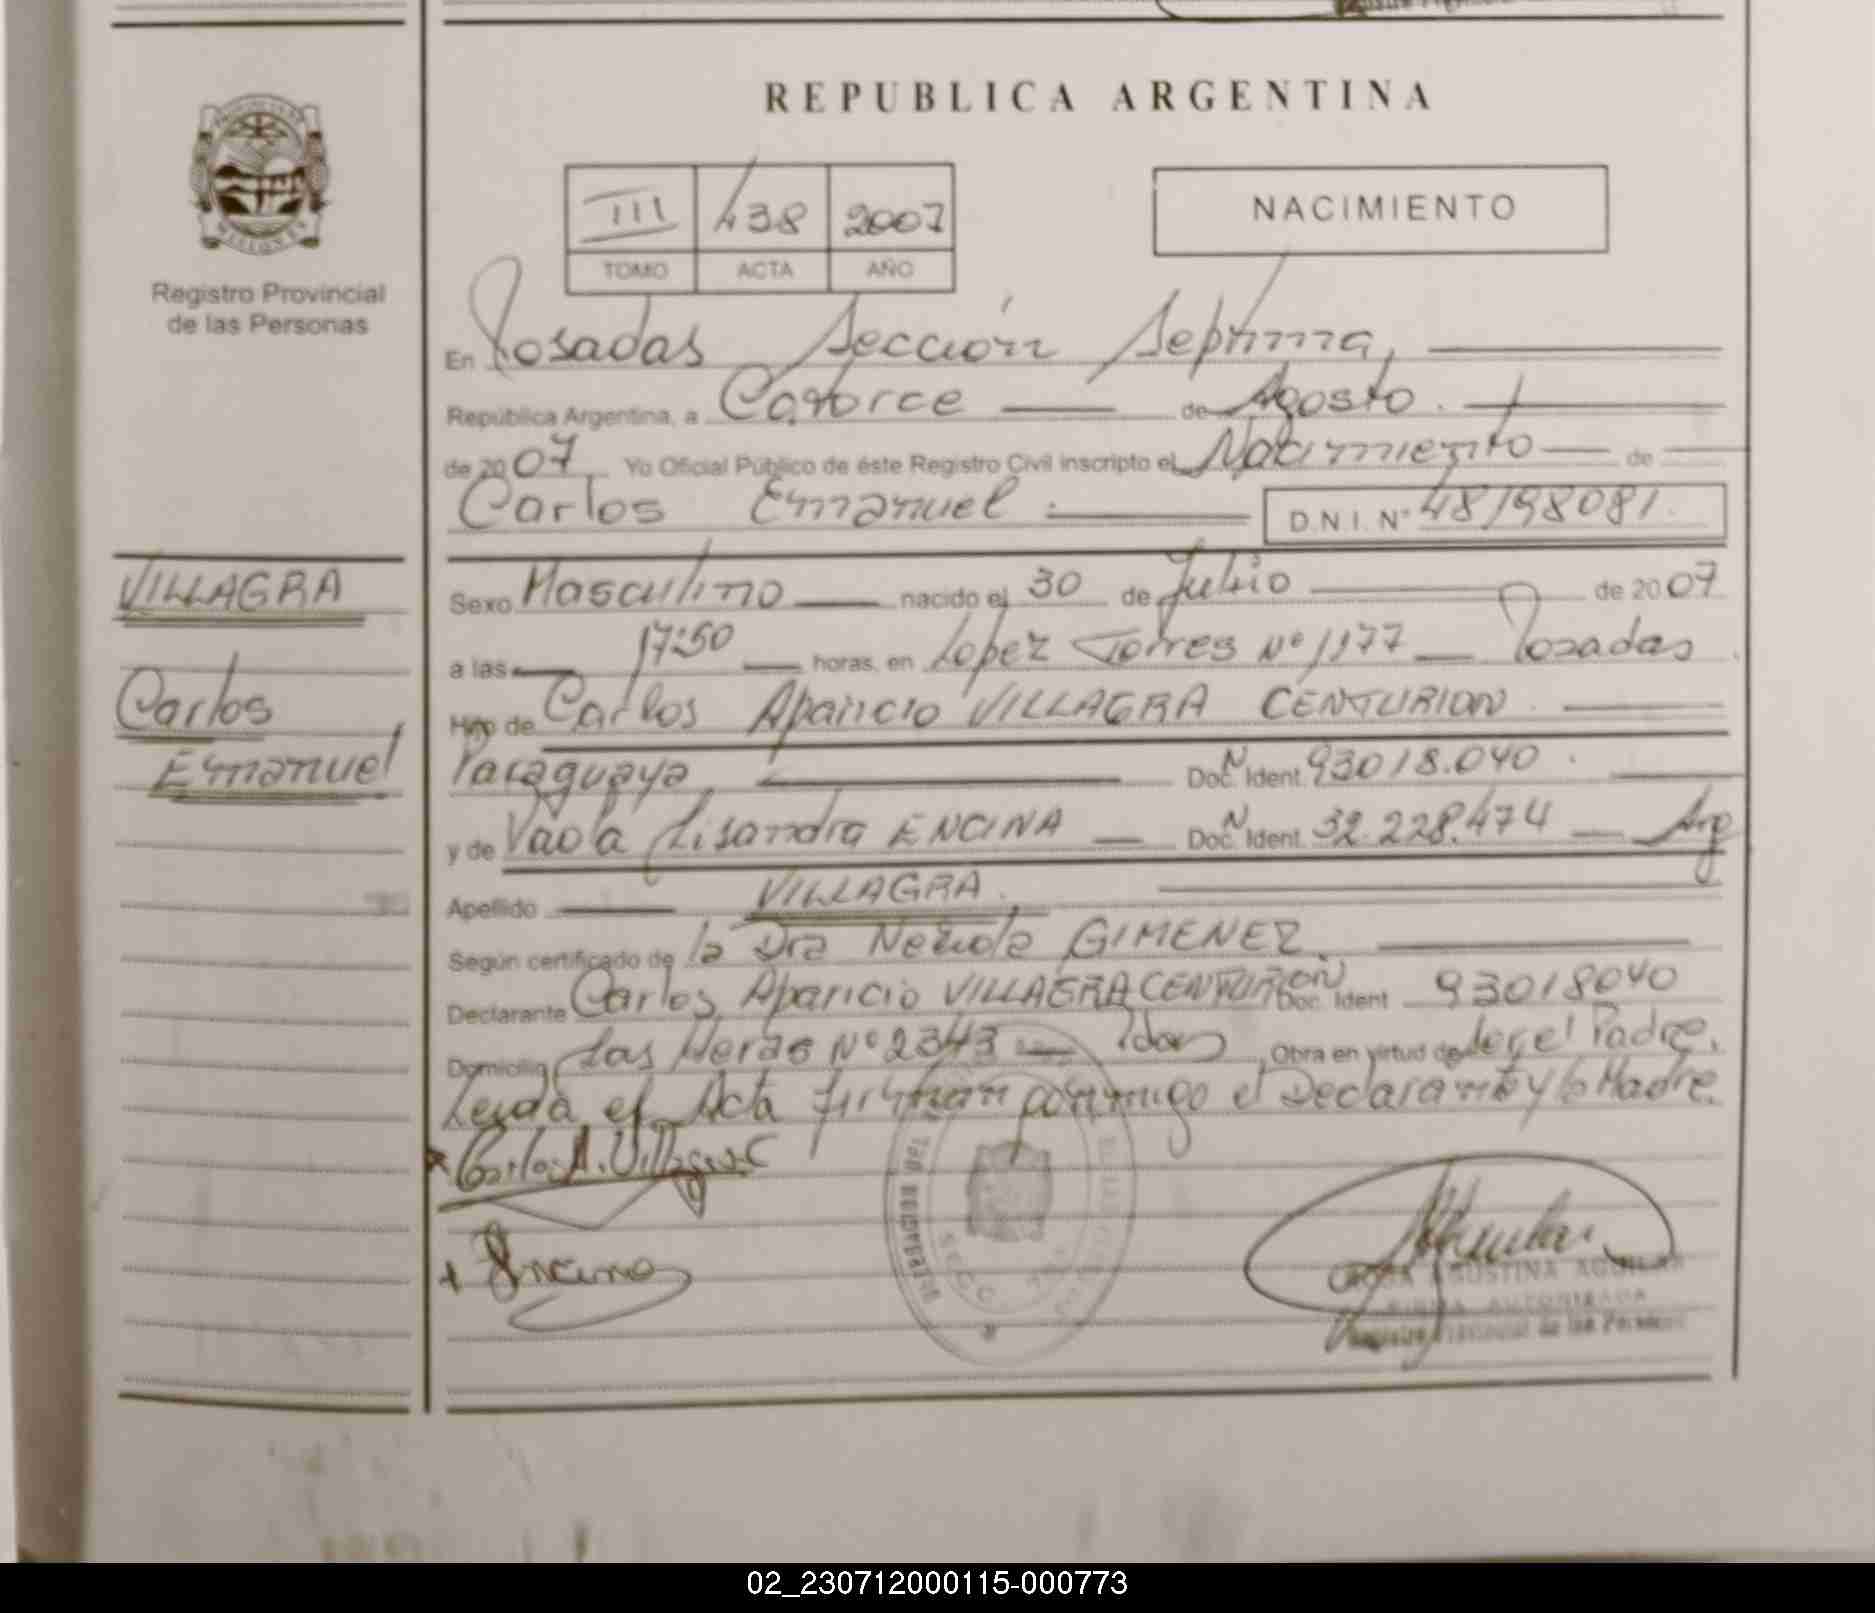 REPUBLICA ARGENTINA
III 438 2007
TOMO ACTA AÑO
NACIMIENTO
Registro Provincial
de las Personas
En Posadas Sección Septima,
República Argentina, a Catorce de Agosto.
de 2007 Yo Oficial Público de éste Registro Civil inscripto el Nacimiento de
Carlos Emanuel D.N.I. Nº 48198081.
VILLAGRA
Carlos
Emanuel
Sexo Masculino nacido el 30 de Julio de 2007
a las 17:50 horas, en Lopez Torres Nº 1177 Posadas.
Hijo de Carlos Aparicio VILLAGRA CENTURION.
Paraguaya Doc. N Ident. 93018.040.
y de Paola Lisandra ENCINA Doc. N Ident. 32.228.474 Arg
Apellido VILLAGRA.
Según certificado de la Dra GIMENEZ
Declarante Carlos Aparicio VILLAGRA CENTURION Doc. Ident 93018040
Domicilio Las Heras Nº 2343 Pdas Obra en virtud de ser el Padre.
Leida el Acta firman conmigo el Declarante y la Madre.
Carlos A. Villagra C
Encina
AGUSTINA AGUILAR
FIRMA AUTORIZADA
Registro Provincial de las Personas
02_230712000115-000773